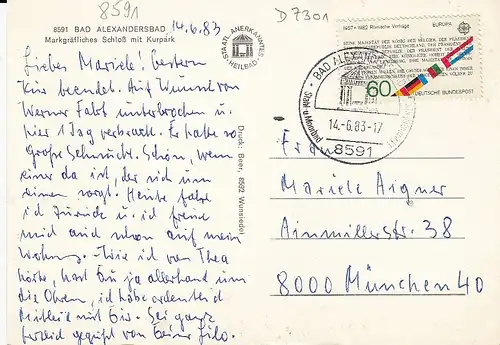 8591
14.6.83
D 7301
8591 BAD ALEXANDERSBAD
Markgräfliches Schloß mit Kurpark
STAATL. ANERKANNTES
HEILBAD
Liebe Mariele! Gestern
Kur beendet. Auf Wunsch von
Werner Fahrt unterbrochen u.
hier 1 Tag verbracht. Er hatte so
große Sehnsucht. Schön, wenn
einer da ist, der sich um
einen sorgt. Heute fahre
ich zurück u. ich freue
mich auch schon auf mein
Wohnung. Wie ich von Thea
hörte, hast Du ja allerhand um
die Ohren, ich habe ordentlich
Mitleid mit Dir. Sei ganz
herzlich gegrüßt von Deiner
Druck: Beer, 8592 Wunsiedel
1957-1982 Römische Verträge
EUROPA
60
DEUTSCHE BUNDESPOST
BAD ALEXANDERSBAD
14.-6.83-17
8591
Frau
Mariele Aigner
Ainmillerstr. 38
8000 München 40